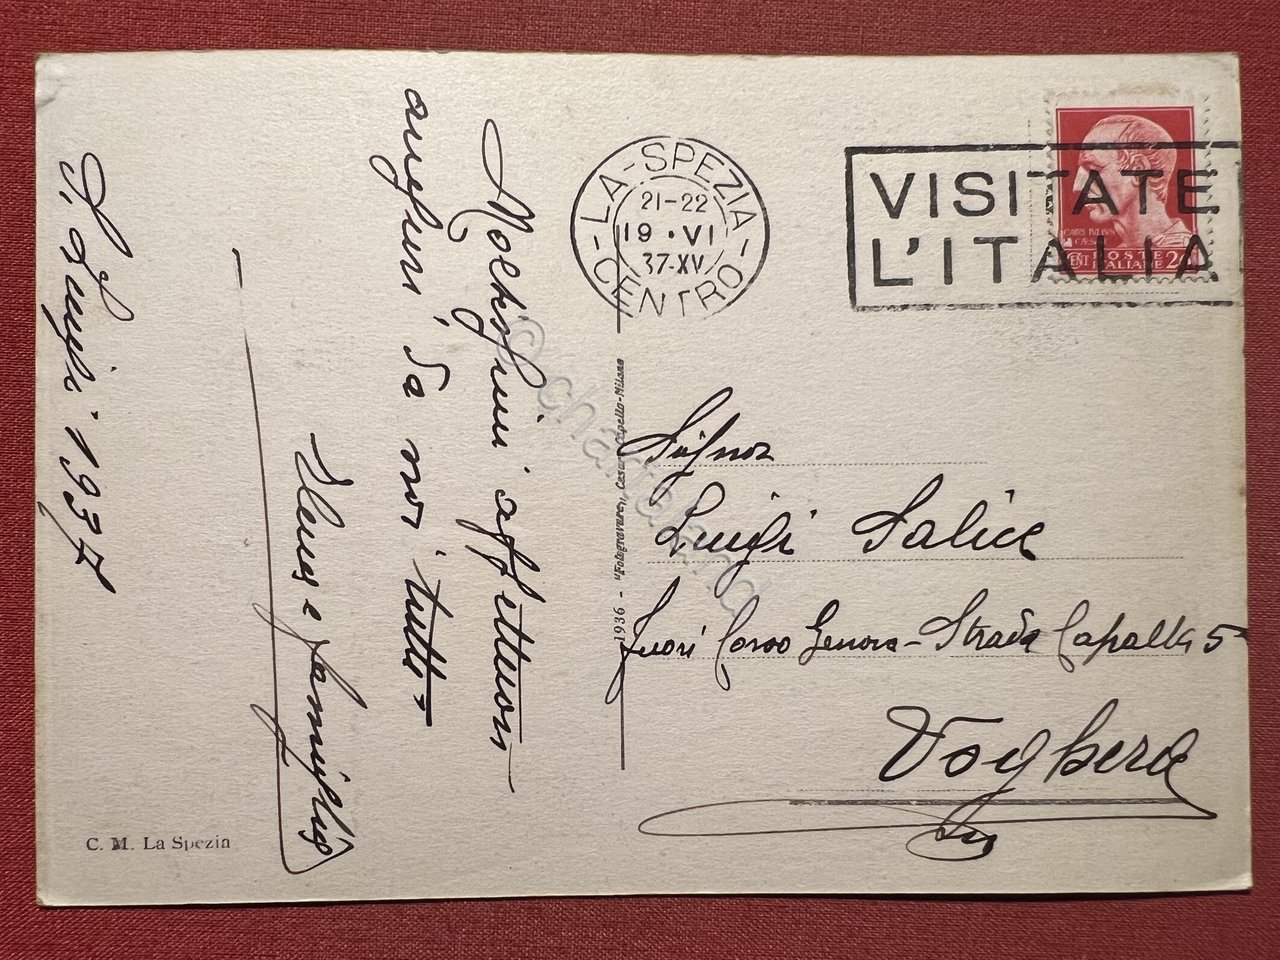 Moltissimi affettuosi
auguri da noi tutti =
e famiglia
S. Luigi 1937
C. M. La Spezia
LA-SPEZIA-CENTRO
21-22
19·VI
37-XV
VISITATE
L'ITALIA
CAIVS IVLIVS
CAES
CENT POSTE
ITALIANE 20
1936 - "Fotogravure" Cesare Capello-Milano
© chartaland
Signor
Luigi Salice
Fuori Corso Genova - Strada Capalla 5
Voghera